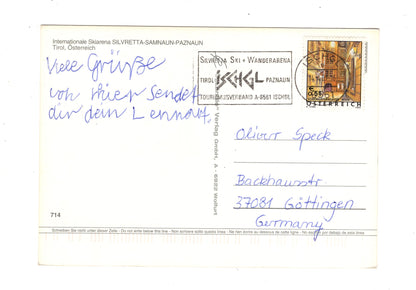 Internationale Skiarena SILVRETTA-SAMNAUN-PAZNAUN
Tirol, Österreich
Viele Grüße
von hier sendet
dir dein Lennart.
SILVRETTA SKI + WANDERARENA
TIROL ISCHGL PAZNAUN
TOURISMUSVERBAND A-6561 ISCHGL
ÖSTERREICH
Verlag GmbH, A - 6922 Wolfurt
Oliver Speck
Backhausstr.
37081 Göttingen
Germany
714
Schreiben Sie nicht unter dieser Zeile - Do not write below this line - Non scrivere sotto questa linea - Ne rien écrire au-dessous de cette ligne - No escribir por debajo de esta línea